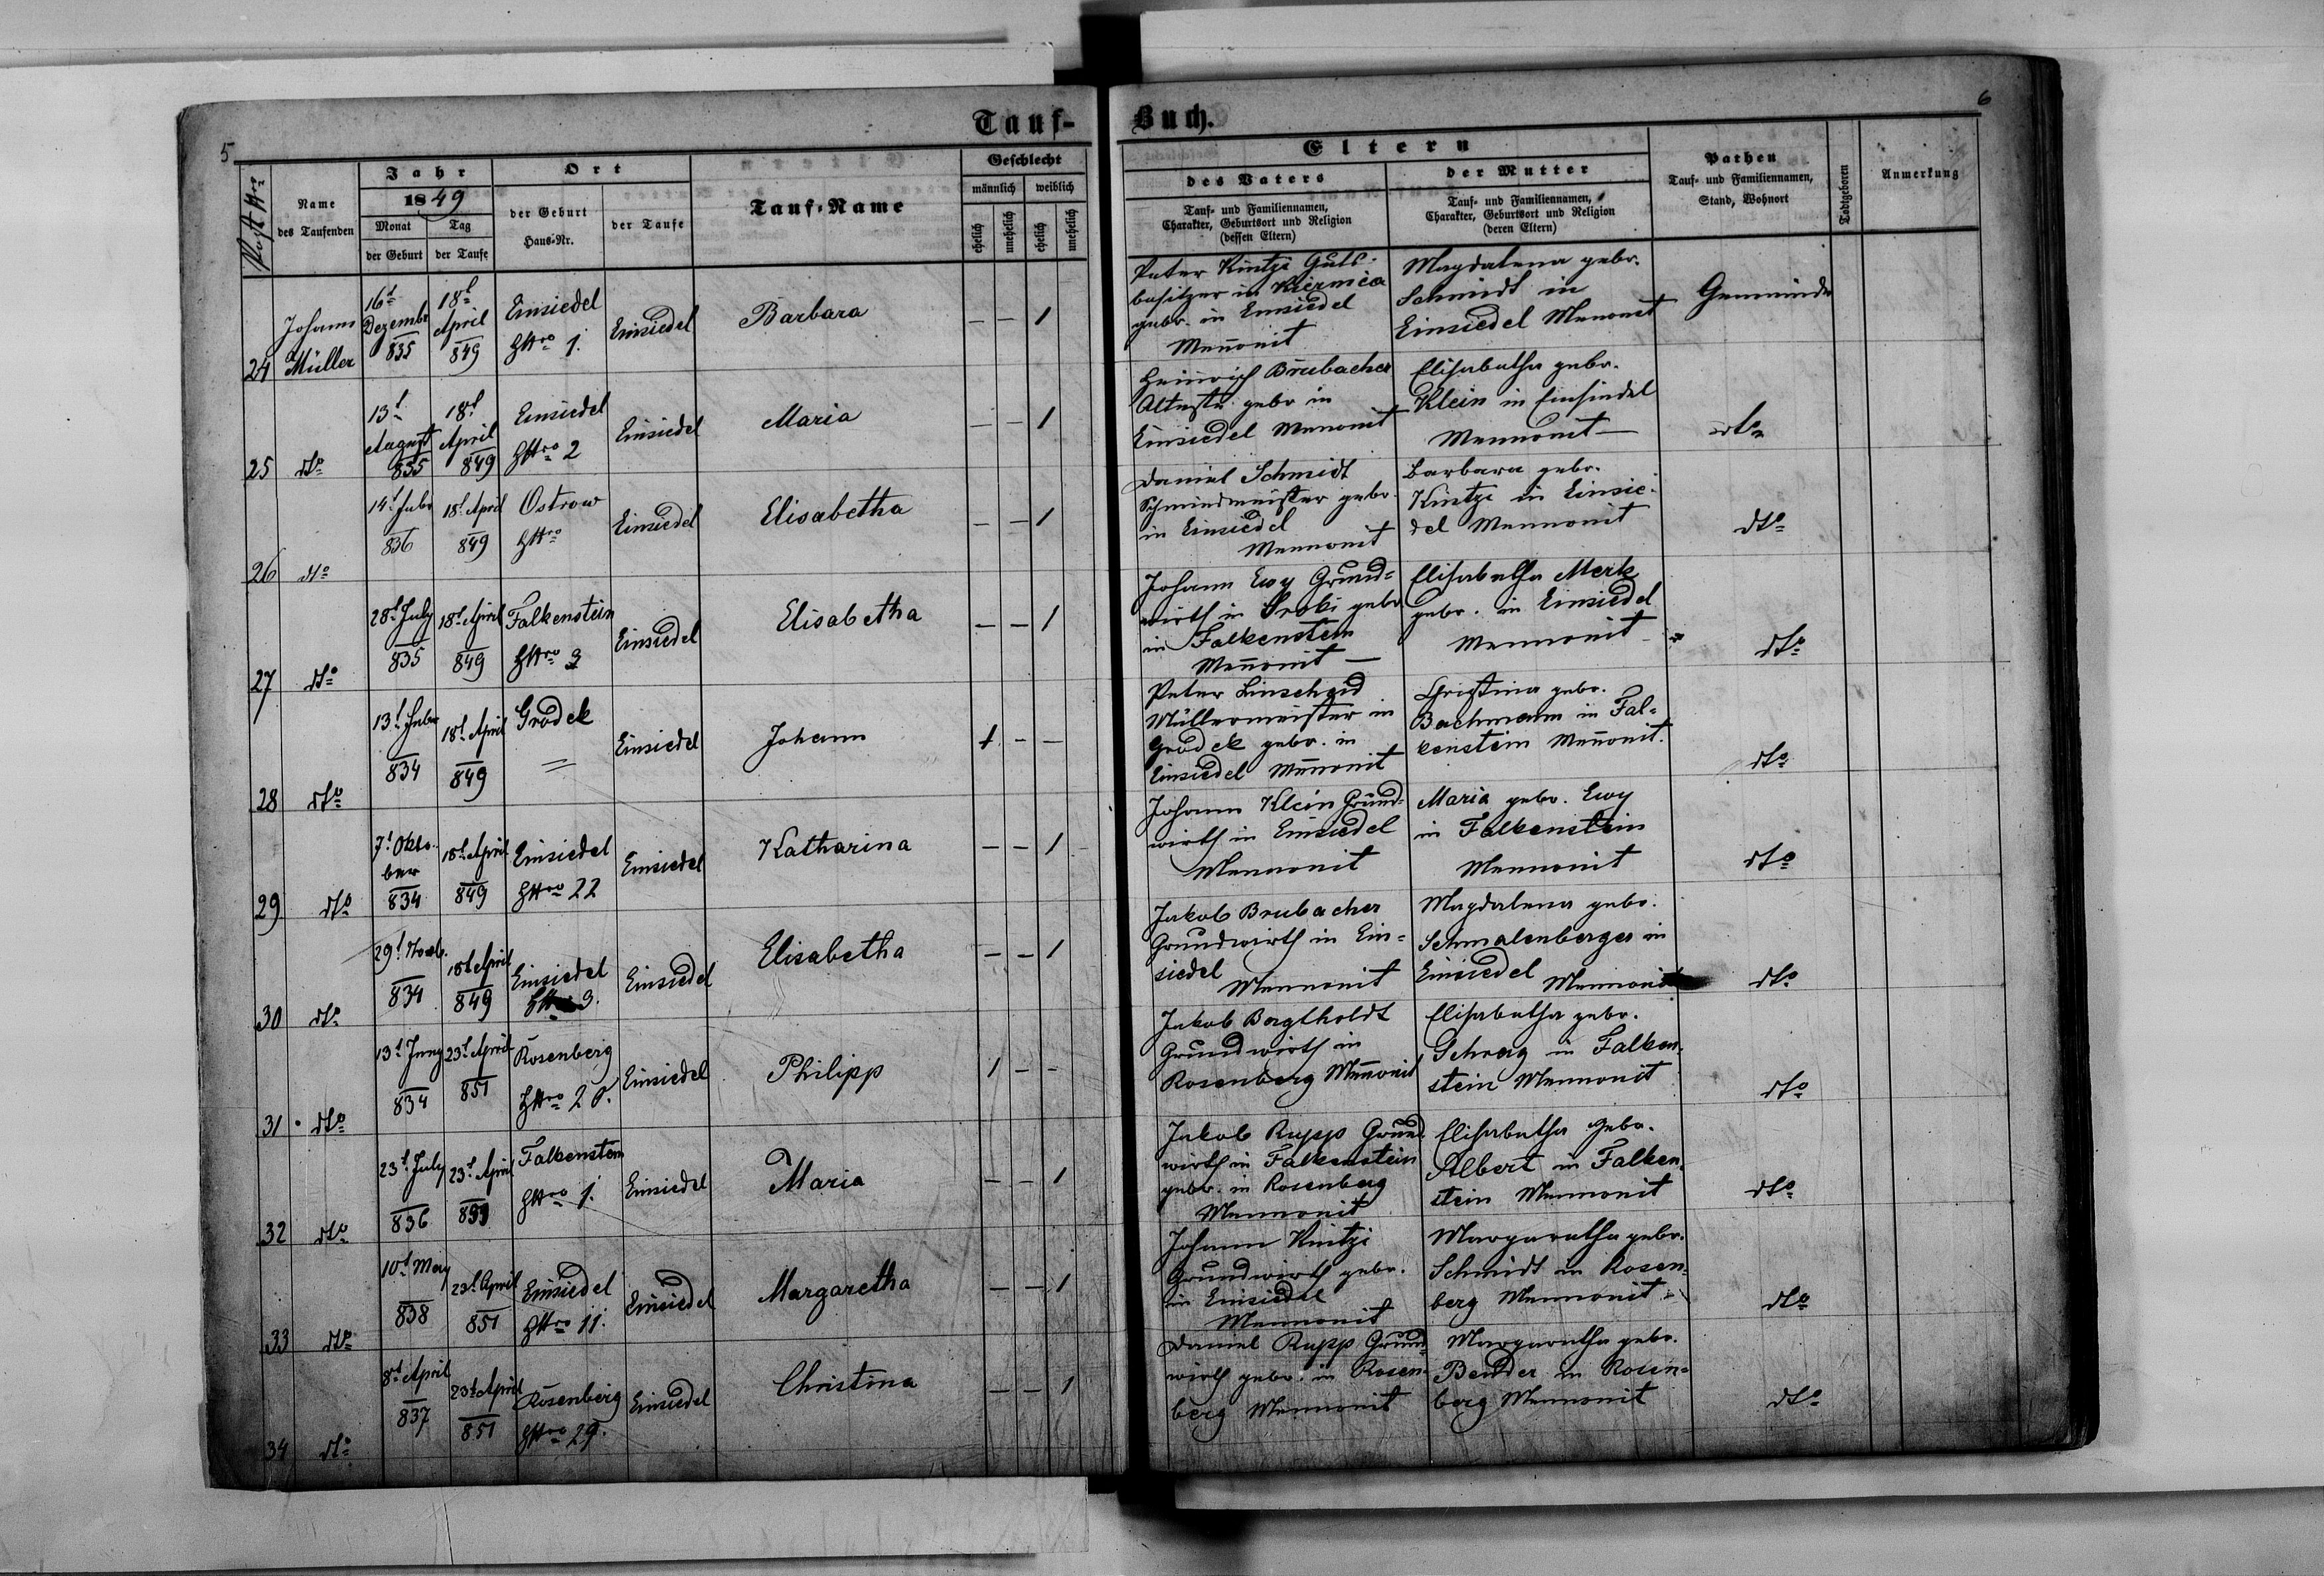 5
6
Tauf-Buch.
Post Nro
Name des Taufenden
Jahr
1849
Monat der Geburt
Tag der Taufe
Ort
der Geburt Haus-Nr.
der Taufe
Tauf-Name
Geschlecht
männlich weiblich
ehelich unehelich ehelich unehelich
Eltern
des Vaters
Tauf- und Familiennamen,
Charakter, Geburtsort und Religion
(dessen Eltern)
der Mutter
Tauf- und Familiennamen,
Charakter, Geburtsort und Religion
(deren Eltern)
Pathen
Tauf- und Familiennamen,
Stand, Wohnort
Todtgeboren
Anmerkung
24 Johann Müller
16t Dezembr 835
18t April 849
Einsiedel HNro 1.
Einsiedel
Barbara
— — 1
Peter Kintzi Guts-
besitzer in Kiernica
gebr. in Einsiedel
Mennonit
Magdalena gebr.
Schmidt in
Einsiedel Menonit
Gemeinde
25 dto
13t August 835
18t April 849
Einsiedel HNro 2
Einsiedel
Maria
— — 1
Heinrich Brubacher
Älteste gebr in
Einsiedel Menonit
Elisabetha gebr.
Klein in Einsiedel
Mennonit —
dto
26 dto
14t Febr 836
18t April 849
Ostrow HNro
Einsiedel
Elisabetha
— — 1
Daniel Schmidt
Schmiedmeister gebr.
in Einsiedel
Mennonit
Barbara gebr.
Kintzi in Einsie-
del Mennonit
dto
27 dto
28t July 835
18t April 849
Falkenstein HNro 3
Einsiedel
Elisabetha
— — 1
Johann Ewy Grund=
wirth in Sroki gebr
in Falkenstein
Mennonit —
Elisabetha Merk
gebr. in Einsiedel
Mennonit
dto
28 dto
13t Febr 834
18t April 849
Grodek =
Einsiedel
Johann
1 — —
Peter Linscheid
Müllermeister in
Grodek gebr. in
Einsiedel Mennonit
Christina gebr.
Bachmann in Fal-
kenstein Mennonit.
dto
29 dto
7t Okto-
ber 834
18t April 849
Einsiedel HNro 22
Einsiedel
Katharina
— — 1
Johann Klein Grund-
wirth in Einsiedel
Mennonit
Maria gebr. Ewy
in Falkenstein
Mennonit
dto
30 dto
29t Novb. 834
18t April 849
Einsiedel 3.
Einsiedel
Elisabetha
— — 1
Jakob Brubacher
Grundwirth in Ein=
siedel
Mennonit
Magdalena gebr.
Schmalenberger in
Einsiedel Mennonit
dto
31 dto
13t Juny 834
23t April 851
Rosenberg HNro 2
Einsiedel
Philipp
1 — —
Jakob Bergtholdt
Grundwirth in
Rosenberg Mennonit
Elisabetha gebr.
Schrag in Falken-
stein Mennonit
dto
32 dto
23t July 836
23t April
Falkenstein HNro 1.
Einsiedel
Maria
— — 1
Jakob Rupp Grund
wirth in Falkenstein
gebr. in Rosenberg
Mennonit
Elisabetha gebr.
Albert in Falken-
stein Mennonit
dto
33 dto
10t May 838
23t April 851
Einsiedel HNro 11.
Einsiedel
Margaretha
— — 1
Johann Kintzi
Grundwirth gebr.
in Einsiedel
Mennonit
Margaretha gebr.
Schmidt in Rosen-
berg Mennonit
dto
34 dto
8t April 837
23t April 851
Rosenberg HNro 29.
Einsiedel
Christina
— — 1
Daniel Rupp Grund=
wirth gebr. in Rosen-
berg Mennonit
Margaretha gebr.
Bender in Rosen=
berg Mennonit
dto